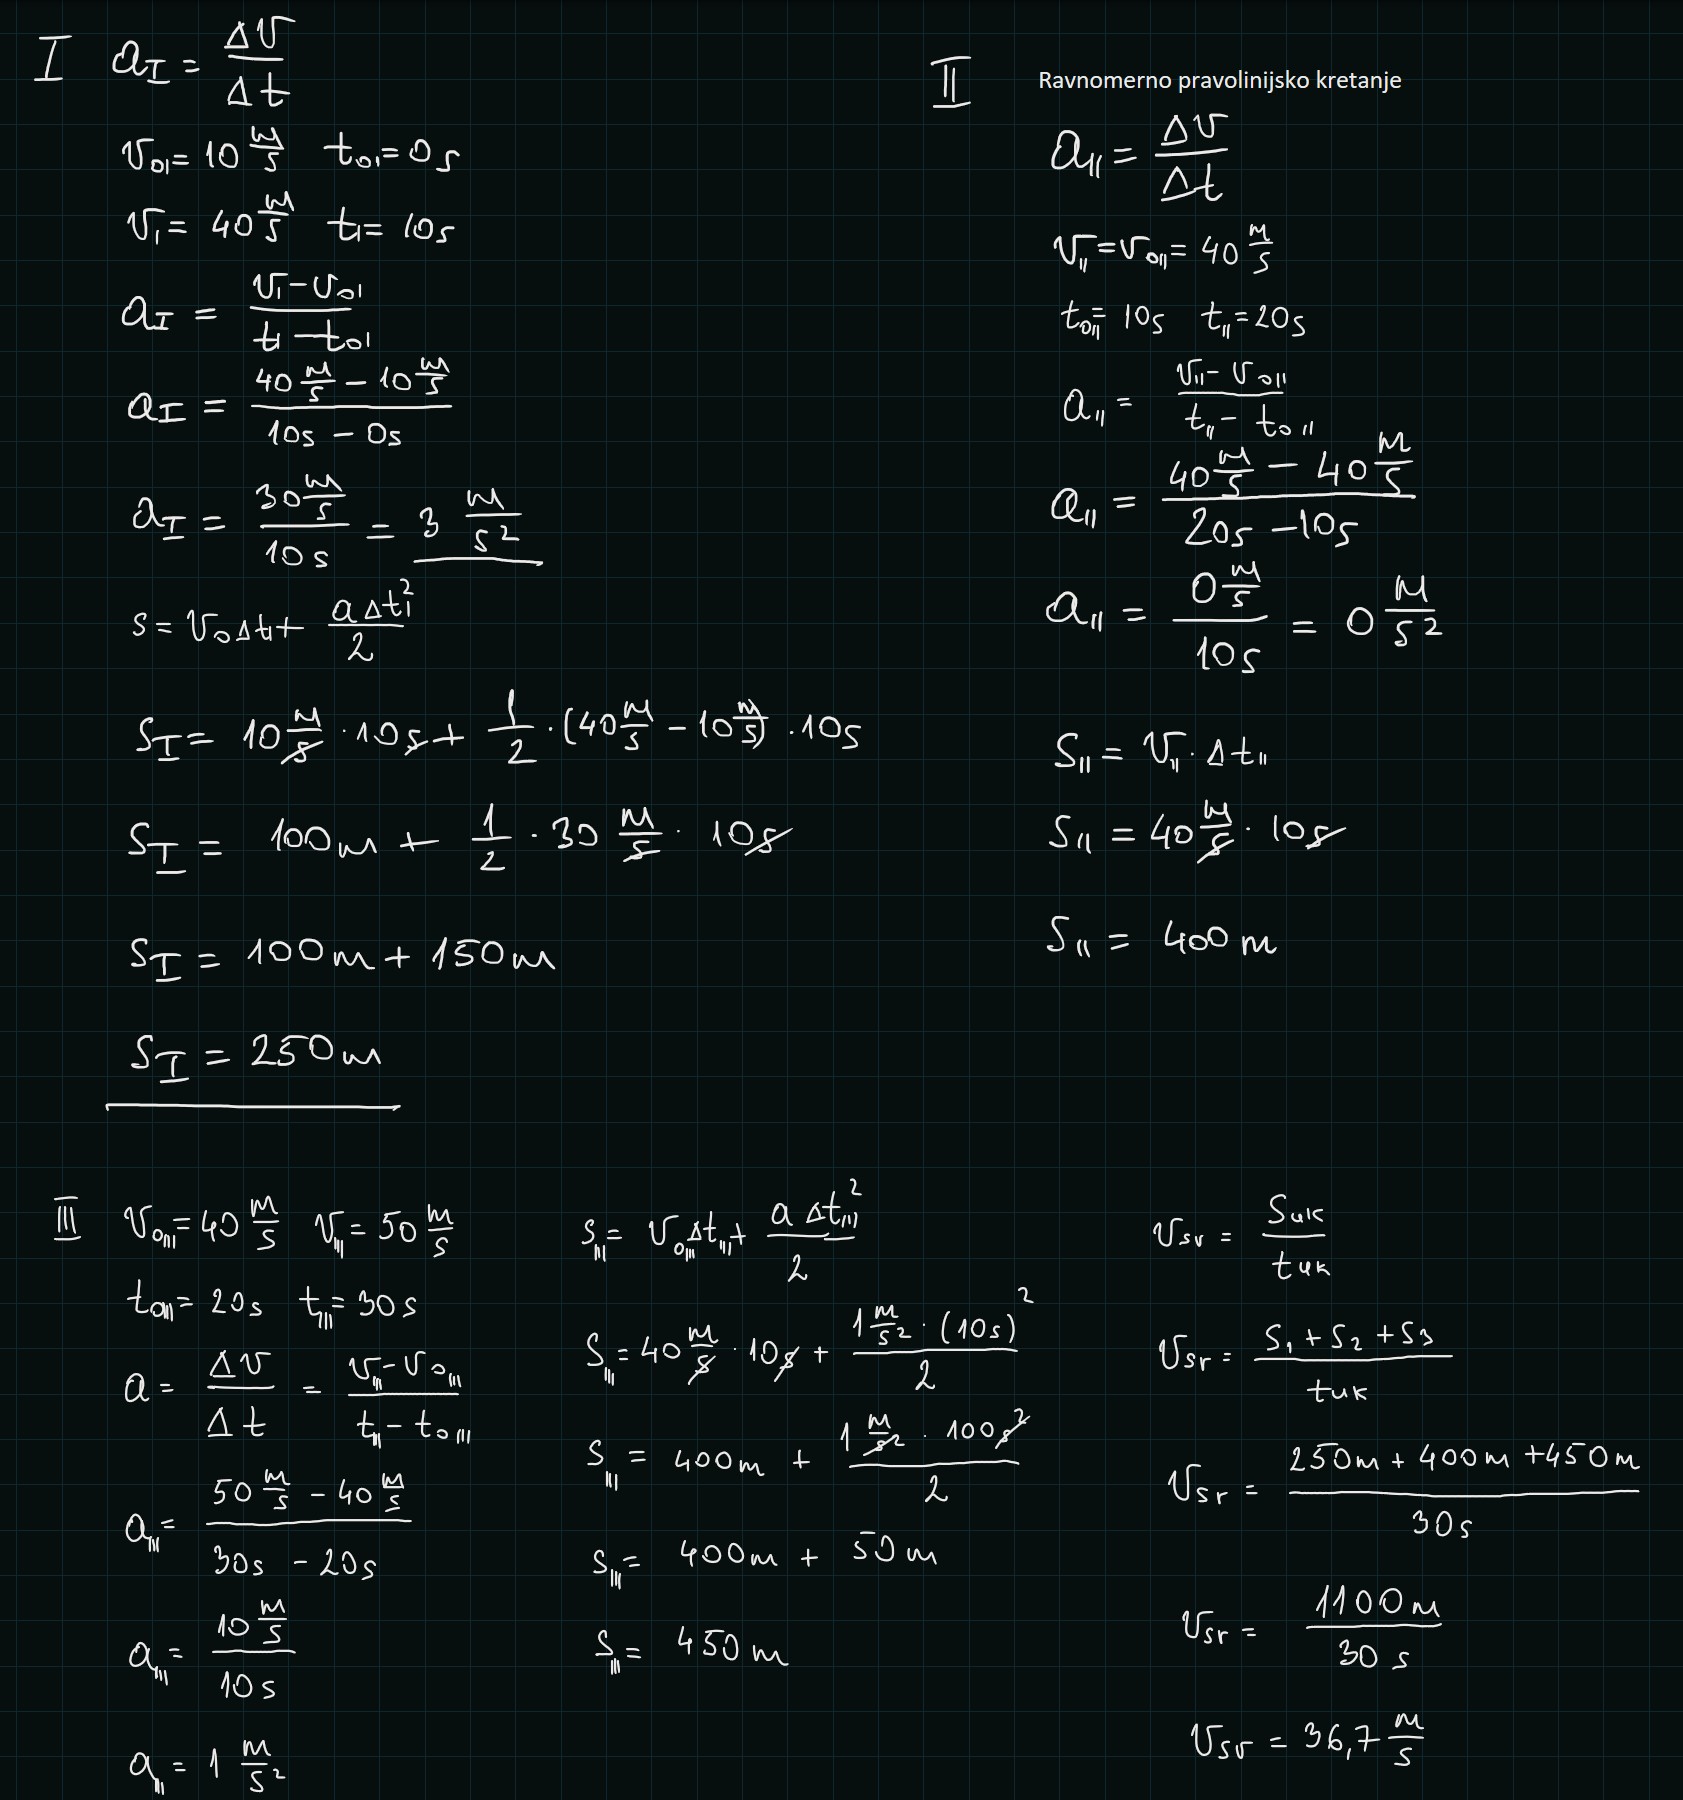 I a_I = Δv/Δt
v_01 = 10 m/s t_01 = 0s
v_1 = 40 m/s t_1 = 10s
a_I = (v_1 - v_01)/(t_1 - t_01)
a_I = (40 m/s - 10 m/s)/(10s - 0s)
a_I = (30 m/s)/(10s) = 3 m/s²
s = v_0 Δt_1 + (a Δt_1²)/2
s_I = 10 m/s · 10s + 1/2 · (40 m/s - 10 m/s) · 10s
s_I = 100m + 1/2 · 30 m/s · 10s
s_I = 100m + 150m
s_I = 250m
II Ravnomerno pravolinijsko kretanje
a_II = Δv/Δt
v_II = v_0II = 40 m/s
t_0II = 10s t_II = 20s
a_II = (v_II - v_0II)/(t_II - t_0II)
a_II = (40 m/s - 40 m/s)/(20s - 10s)
a_II = (0 m/s)/(10s) = 0 m/s²
s_II = v_II · Δt_II
s_II = 40 m/s · 10s
s_II = 400m
III v_0III = 40 m/s v_III = 50 m/s
t_0III = 20s t_III = 30s
a = Δv/Δt = (v_III - v_0III)/(t_III - t_0III)
a_III = (50 m/s - 40 m/s)/(30s - 20s)
a_III = (10 m/s)/(10s)
a_III = 1 m/s²
s_III = v_0III Δt_III + (a Δt_III²)/2
s_III = 40 m/s · 10s + (1 m/s² · (10s)²)/2
s_III = 400m + (1 m/s² · 100s²)/2
s_III = 400m + 50m
s_III = 450m
v_sr = s_uk/t_uk
v_sr = (s_1 + s_2 + s_3)/t_uk
v_sr = (250m + 400m + 450m)/(30s)
v_sr = (1100m)/(30s)
v_sr = 36,7 m/s